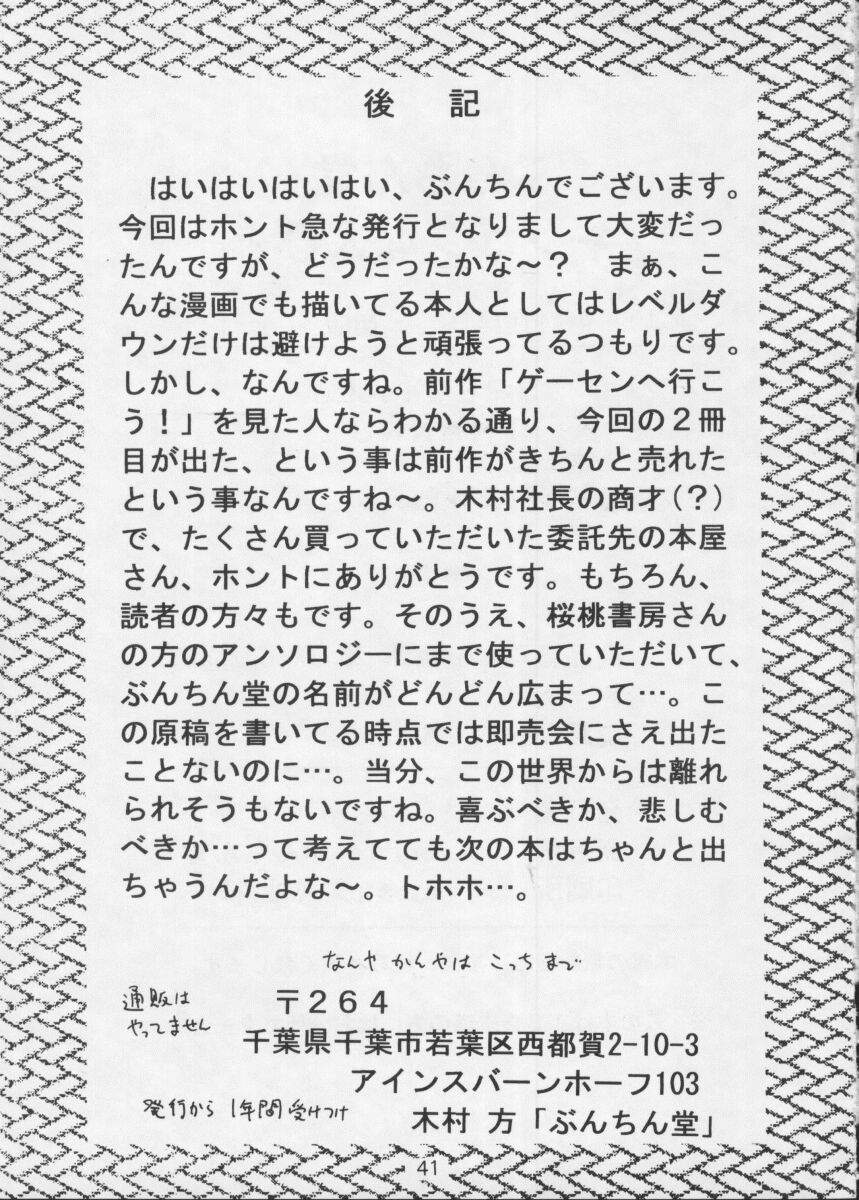 後 記
はいはいはいはい、ぶんちんでございます。
今回はホント急な発行となりまして大変だっ
たんですが、どうだったかな～？　まぁ、こ
んな漫画でも描いてる本人としてはレベルダ
ウンだけは避けようと頑張ってるつもりです。
しかし、なんですね。前作「ゲーセンへ行こ
う！」を見た人ならわかる通り、今回の２冊
目が出た、という事は前作がきちんと売れた
という事なんですね～。木村社長の商才(？)
で、たくさん買っていただいた委託先の本屋
さん、ホントにありがとうです。もちろん、
読者の方々もです。そのうえ、桜桃書房さん
の方のアンソロジーにまで使っていただいて、
ぶんちん堂の名前がどんどん広まって…。こ
の原稿を書いてる時点では即売会にさえ出た
ことないのに…。当分、この世界からは離れ
られそうもないですね。喜ぶべきか、悲しむ
べきか…って考えてても次の本はちゃんと出
ちゃうんだよな～。トホホ…。
なんやかんやは こっちまで
通販は
やってません
〒２６４
千葉県千葉市若葉区西都賀2-10-3
アインスバーンホーフ103
発行から 1年間受けつけ
木村 方「ぶんちん堂」
41